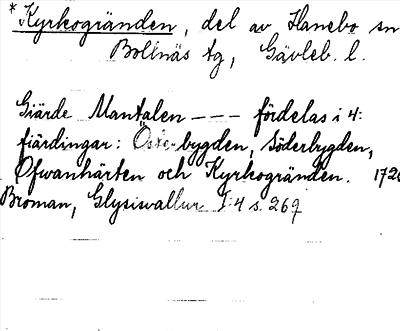 * Kyrkogränden, del av Hanebo sn
Bollnäs tg, Gävleb. l.
Giärde Mantalen - - - fördelas i 4:
fiärdingar: Öster-bygden, Söderbygden,
Ofwanhärten och Kyrkogränden. 172
Broman, Glysisvallur I:4 s. 269